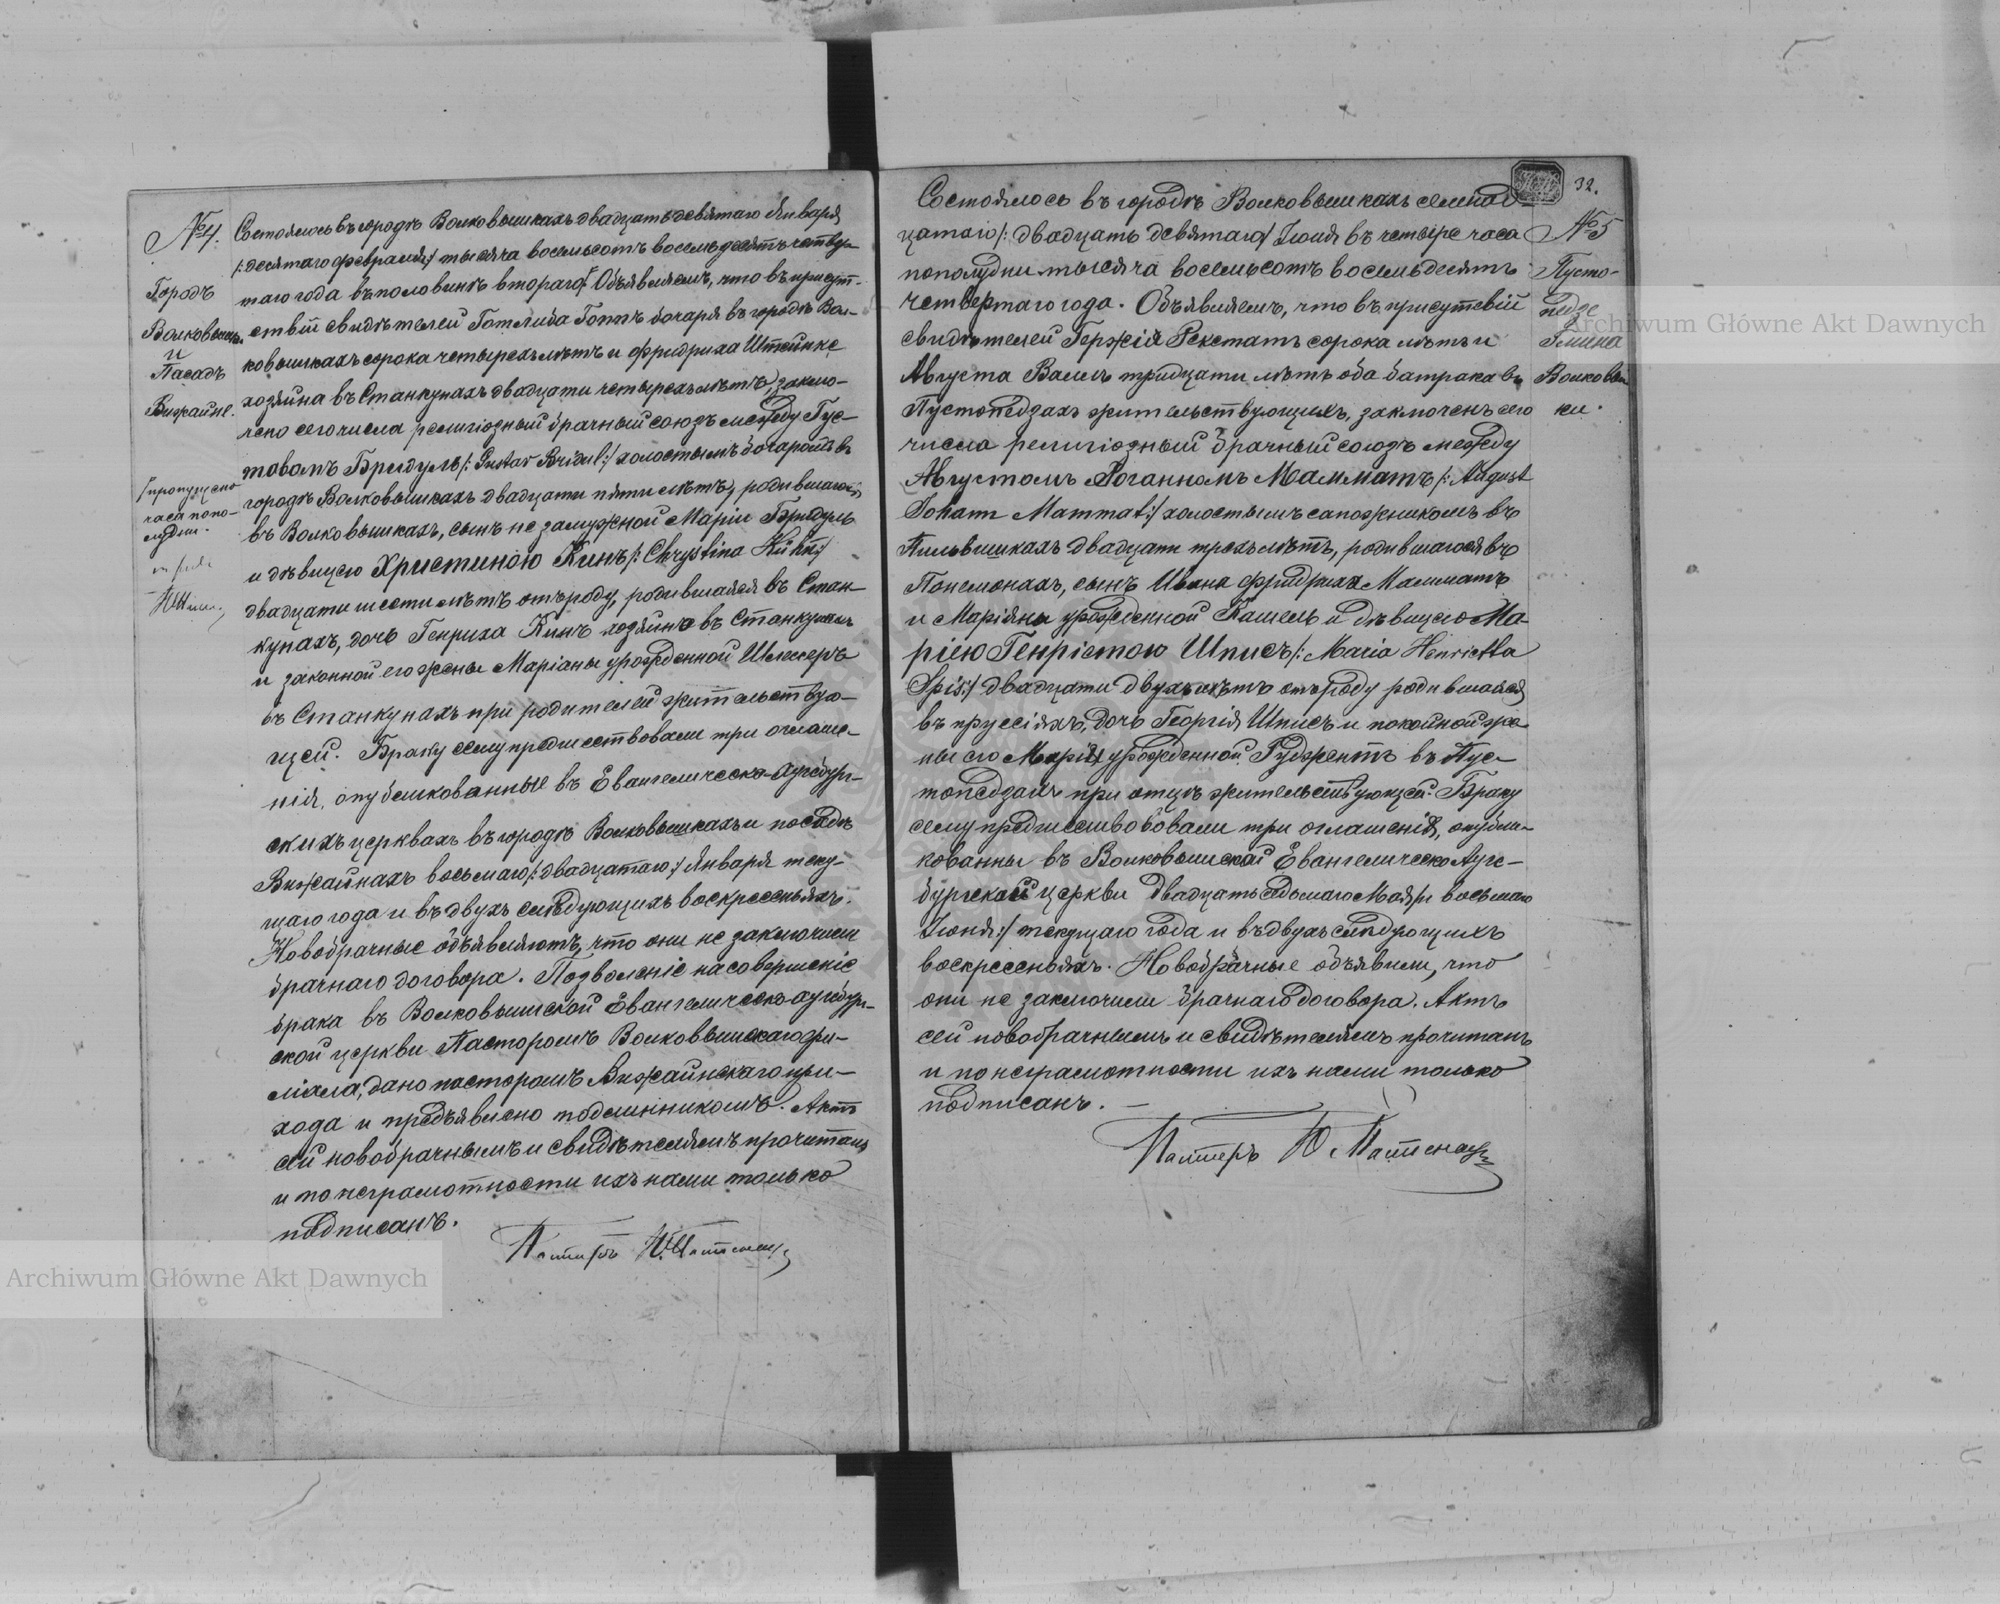 № 4.
Городъ
Волковышки
и
Посадъ
Вижайне.
/пропущено
часа попо-
лудни.
Состоялось въ городѣ Волковышкахъ двадцать девятаго Января
/:десятаго февраля:/ тысяча восемьсотъ восемьдесятъ четвер-
таго года въ половинѣ втораго/. Объявляемъ, что въ присут-
ствіи свидѣтелей Готлиба Гоппъ бочаря въ городѣ Вол-
ковышкахъ сорока четырехъ лѣтъ и Фридриха Штейнке
хозяина въ Станкунахъ двадцати четырехъ лѣтъ, заклю-
чено сего числа религіозный брачный союзъ между Гус-
тавомъ Бридуль /: Gustav Bridul :/ холостымъ бочаромъ въ
городѣ Волковышкахъ двадцати пяти лѣтъ, родившагося
въ Волковышкахъ, сынъ не замужной Маріи Бридуль
и дѣвицею Христиною Кинъ /: Chrystina Kühn :/
двадцати шести лѣтъ отъ роду, родившаяся въ Стан-
кунахъ, дочь Генриха Кинъ хозяина въ Станкунахъ
и законной его жены Маріаны урожденной Шлесеръ
въ Станкунахъ при родителей жительствую-
щей. Браку сему предшествовали три оглаше-
нія, опубликованные въ Евангелическо-Аугсбург-
скихъ церквахъ въ городѣ Волковышкахъ и посадѣ
Вижайнахъ восьмаго /: двадцатаго :/ Января теку-
щаго года и въ двухъ слѣдующихъ воскресеньяхъ.
Новобрачные объявляютъ, что они не заключили
брачнаго договора. Позволеніе на совершеніе
брака въ Волковышской Евангелическо-Аугсбург-
ской церкви Пасторомъ Волковышскаго фи-
ліала, дано пасторомъ Вижайнскаго при-
хода и предъявлено подлинникомъ. Актъ
сей новобрачнымъ и свидѣтелямъ прочитанъ
и по неграмотности ихъ нами только
подписанъ.
Пасторъ
32.
№ 5
Пусто-
педзе
Гмина
Волковыш
ки.
Состоялось въ городѣ Волковышкахъ семнад-
цатаго /: двадцать девятаго/ Іюня въ четыре часа
пополудни тысяча восемьсотъ восемьдесятъ
четвертаго года. Объявляемъ, что въ присутствіи
свидѣтелей Гержія Рекстатъ сорока лѣтъ и
Августа Валль тридцати лѣтъ оба батрака въ
Пустопедзахъ жительствующихъ, заключенъ сего
числа религіозный брачный союзъ между
Августомъ Іоганномъ Мамматъ /: August
Johann Mammat :/ холостымъ сапожникомъ въ
Пильвишкахъ двадцати трехъ лѣтъ, родившагося въ
Понемонахъ, сынъ Ивана Фридриха Мамматъ
и Маріяны урожденной Кашель и дѣвицею Ма-
ріею Генріетою Шписъ /: Maria Henrietta
Spis :/ двадцати двухъ лѣтъ отъ роду родившаяся
въ пруссіяхъ, дочь Георгія Шписъ и покойной же-
ны его Маріи урожденной Рудженъ въ Пус-
топедзахъ при отцѣ жительствующей. Браку
сему предшествовали три оглашенія, опубли-
кованны въ Волковышской Евангелическо Аугс-
бургской церкви двадцать седьмаго Мая /: восьмаго
Іюня:/ текущаго года и въ двухъ слѣдующихъ
воскресеньяхъ. Новобрачные объявили, что
они не заключили брачнаго договора. Актъ
сей новобрачнымъ и свидѣтелямъ прочитанъ
и по неграмотности ихъ нами только
подписанъ. —
Пасторъ Ю.
Archiwum Główne Akt Dawnych
Archiwum Główne Akt Dawnych